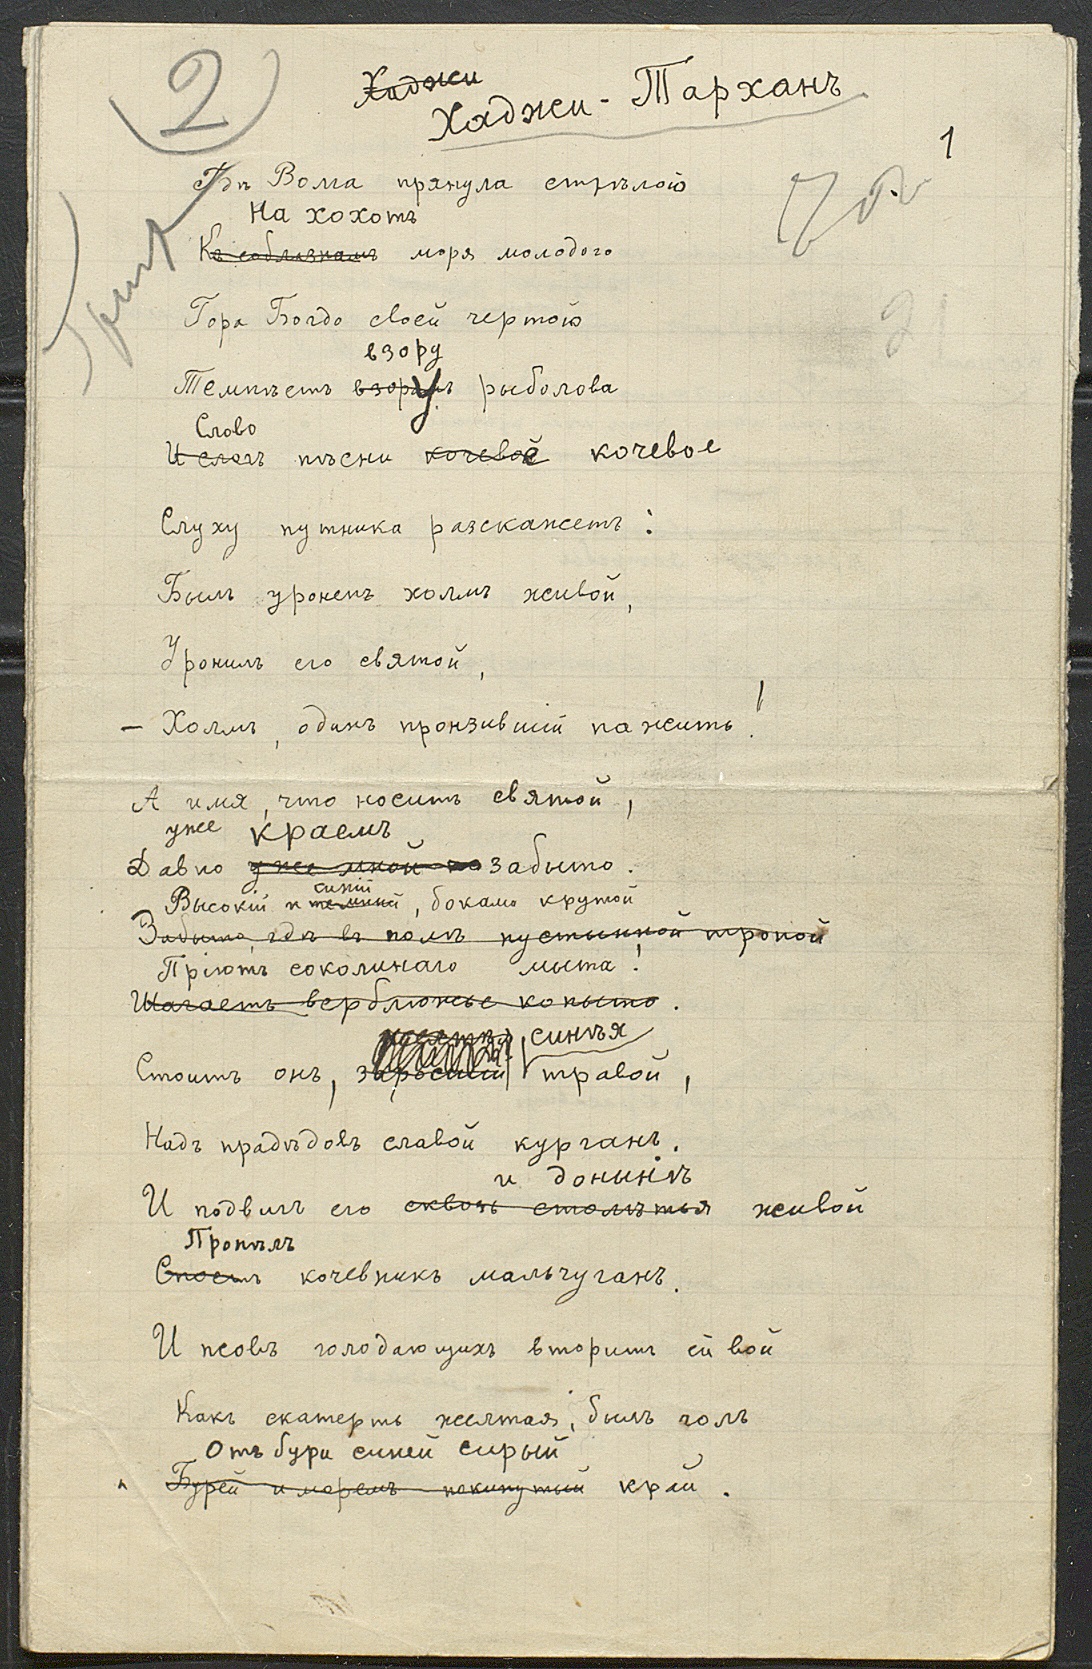 2
Хаджи
Хаджи - Тарханъ
1
Гдѣ Волга прянула стрѣлою
На хохотъ
Къ соблазнамъ моря молодого
Гора Богдо своей чертою
взору
Темнѣетъ взорамъ рыболова
Слово
И слогъ пѣсни кочевое кочевое
Слуху путника разскажетъ:
Былъ уроненъ холмъ живой,
Уронилъ его святой,
— Холмъ, одинъ пронзившій пажить!
А имя, что носитъ святой,
уже краемъ
Давно уже мной забыто.
синій
Высокій и темный, боками крутой
Забыто, гдѣ въ полѣ пустынной тропой
Пріютъ соколинаго мыта!
Шагаетъ верблюжье копыто.
синѣя
Стоитъ онъ, заросшій травой,
Надъ прадѣдовъ славой курганъ.
и донынѣ
И подвигъ его сквозь столѣтья живой
Пропѣлъ
Споетъ кочевникъ мальчуганъ.
И псовъ голодающихъ вторитъ ей вой
Какъ скатерть желтая, былъ голъ
Отъ бури синей сирый
Бурей и моремъ покинутый край.